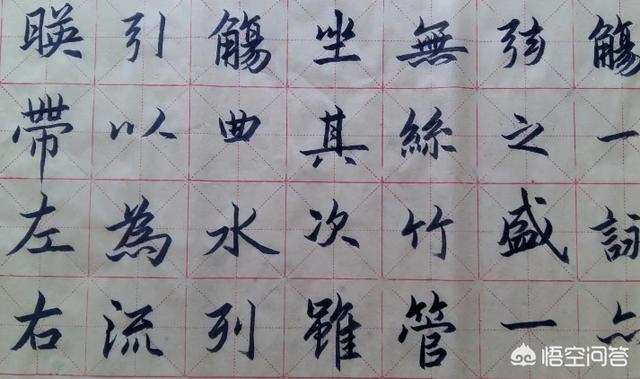 暎帶左右
引以為流
觴曲水列
坐其次雖
無絲竹管
弦之盛一
觴一詠
悟空问答